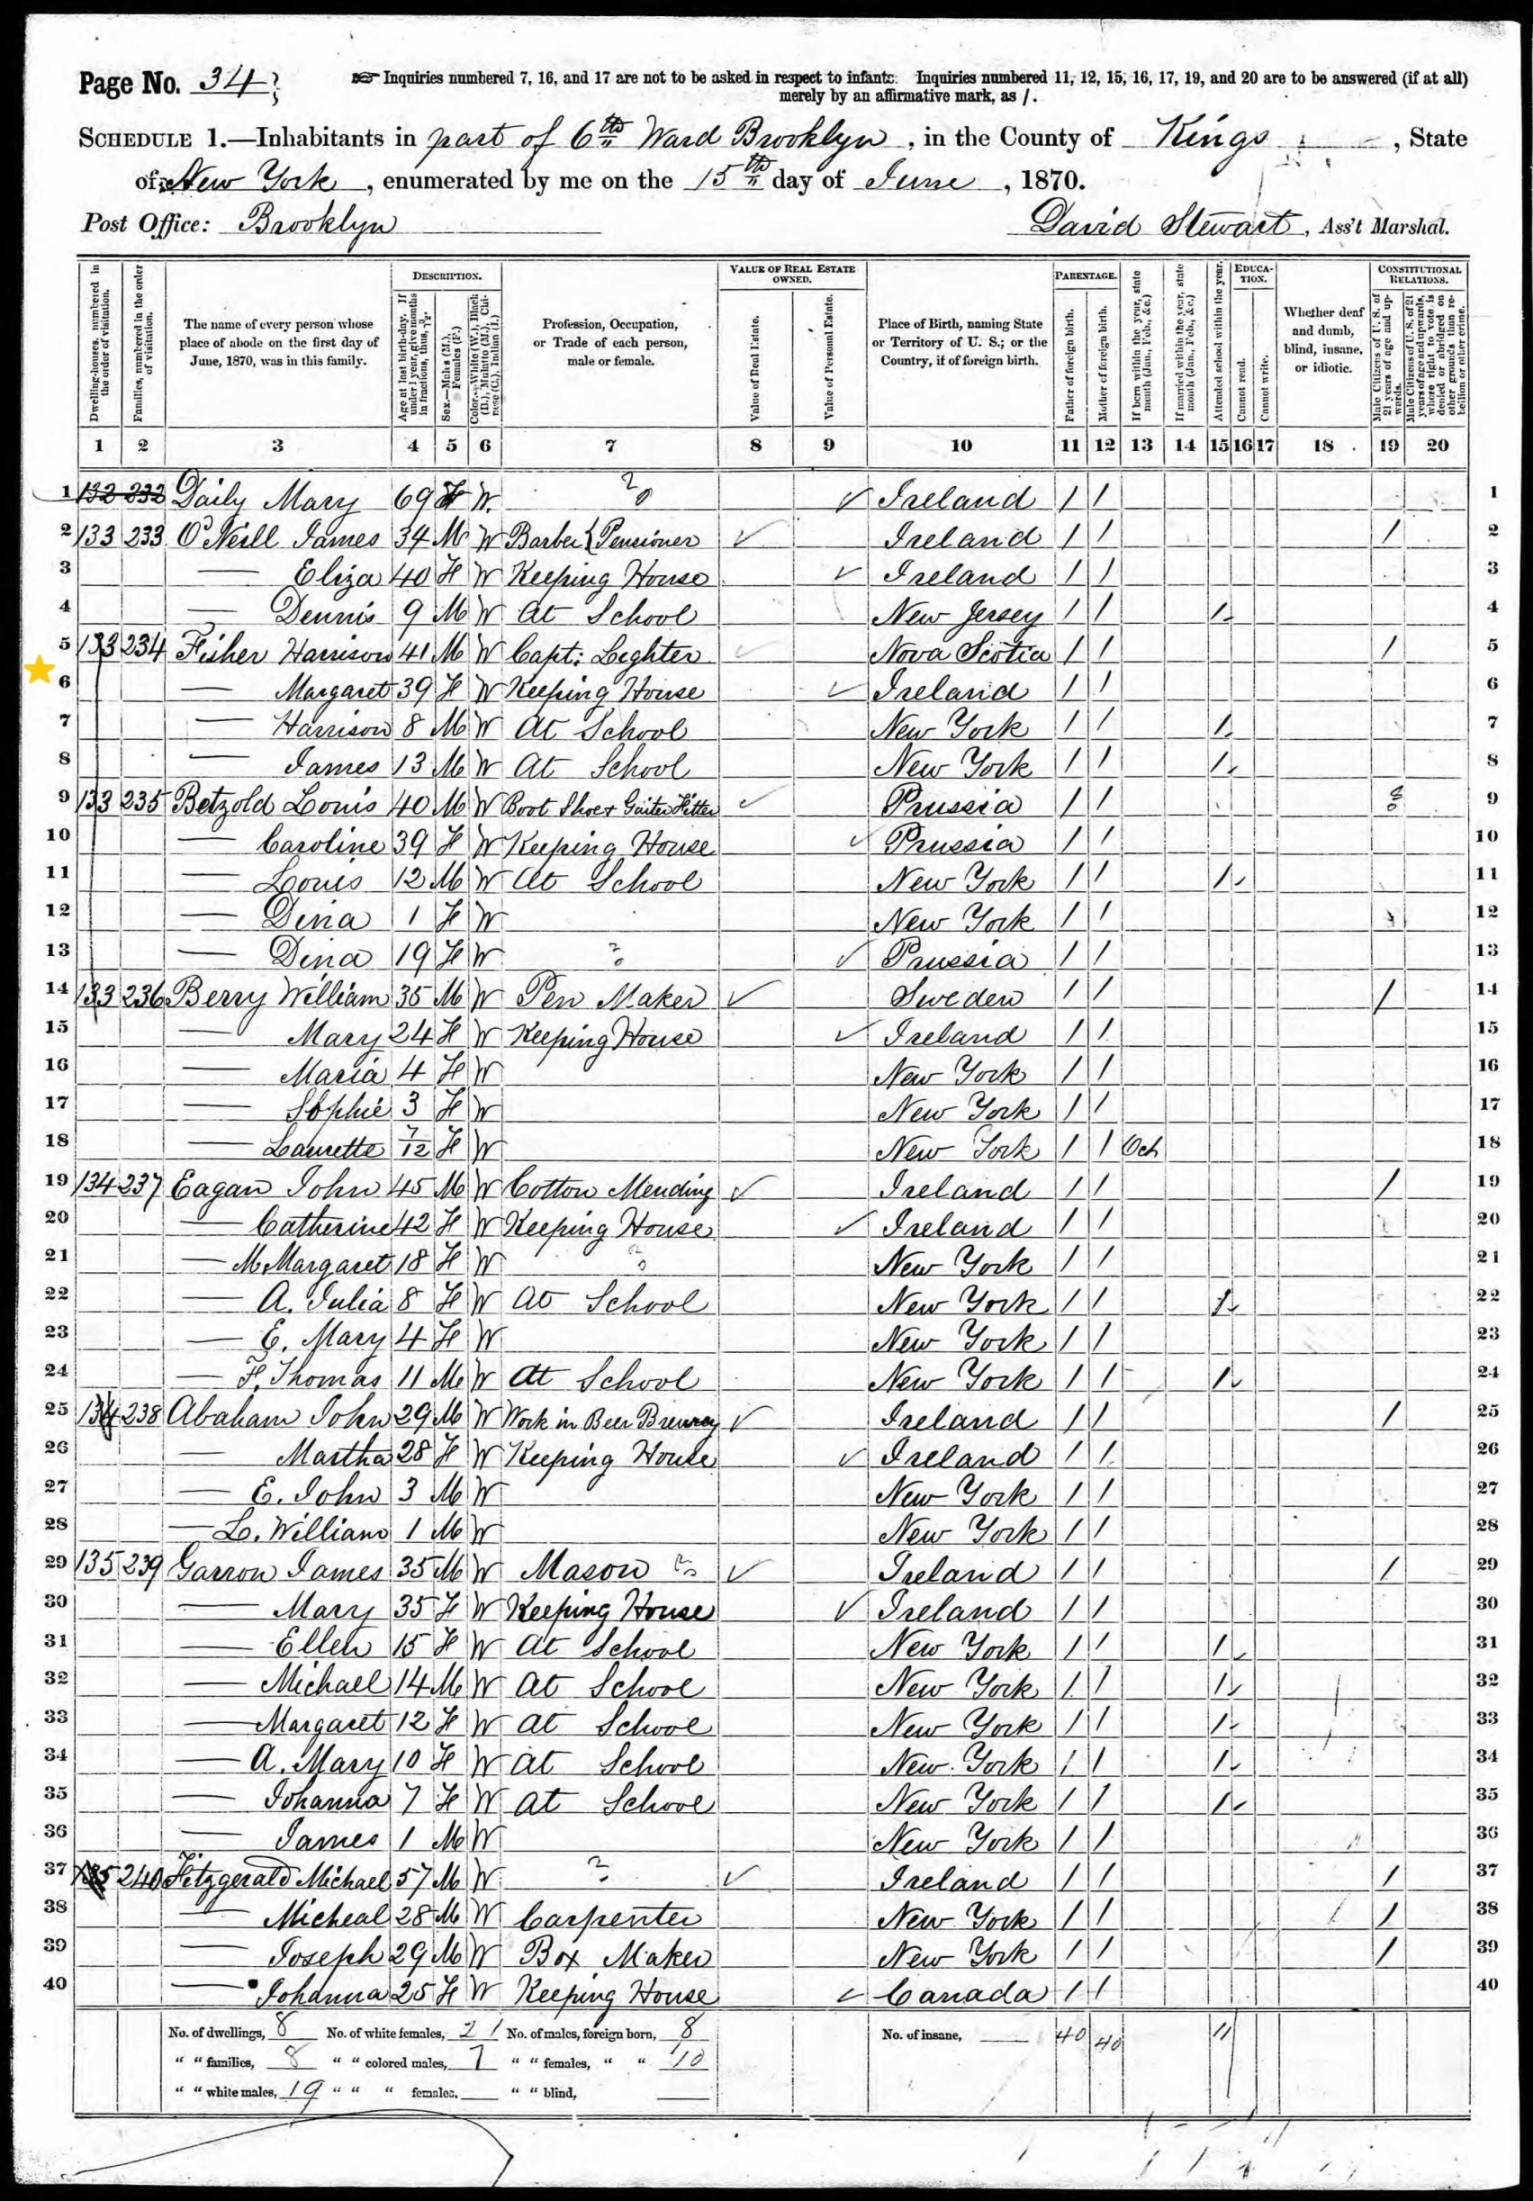 Page No. 34
Inquiries numbered 7, 16, and 17 are not to be asked in respect to infants. Inquiries numbered 11, 12, 15, 16, 17, 19, and 20 are to be answered (if at all)
merely by an affirmative mark, as /.
SCHEDULE 1.—Inhabitants in part of 6th Ward Brooklyn, in the County of Kings, State
of New York, enumerated by me on the 15th day of June, 1870.
Post Office: Brooklyn
David Stewart, Ass't Marshal.
Dwelling-houses, numbered in the order of visitation.
Families, numbered in the order of visitation.
The name of every person whose place of abode on the first day of June, 1870, was in this family.
DESCRIPTION.
Age at last birth-day. If under 1 year, give months in fractions, thus, 3/12.
Sex.—Males (M.), Females (F.)
Color.—White (W.), Black (B.), Mulatto (M.), Chinese (C.), Indian (I.)
Profession, Occupation, or Trade of each person, male or female.
VALUE OF REAL ESTATE OWNED.
Value of Real Estate.
Value of Personal Estate.
Place of Birth, naming State or Territory of U. S.; or the Country, if of foreign birth.
PARENTAGE.
Father of foreign birth.
Mother of foreign birth.
If born within the year, state month (Jan., Feb., &c.)
If married within the year, state month (Jan., Feb., &c.)
Attended school within the year.
EDUCATION.
Cannot read.
Cannot write.
Whether deaf and dumb, blind, insane, or idiotic.
CONSTITUTIONAL RELATIONS.
Male Citizens of U. S. of 21 years of age and upwards.
Male Citizens of U. S. of 21 years of age and upwards, where right to vote is denied or abridged on other grounds than rebellion or other crime.
1 2 3 4 5 6 7 8 9 10 11 12 13 14 15 16 17 18 19 20
1 132 232 Daily Mary 69 F W. ? Ireland / / 1
2 133 233 O'Neill James 34 M W Barber { Pensioner Ireland / / / 2
3 — Eliza 40 F W Keeping House Ireland / / 3
4 — Dennis 9 M W At School New Jersey / / / 4
5 133 234 Fisher Harrison 41 M W Capt: Leghter Nova Scotia / / / 5
6 — Margaret 39 F W Keeping House Ireland / / 6
7 — Harrison 8 M W At School New York / / / 7
8 — James 13 M W At School New York / / / 8
9 133 235 Betzold Louis 40 M W Boot Shoe & Gaiter Fitter Prussia / / ? 9
10 — Caroline 39 F W Keeping House Prussia / / 10
11 — Louis 12 M W At School New York / / / 11
12 — Dina 1 F W New York / / 12
13 — Dina 19 F W ? Prussia / / 13
14 133 236 Berry William 35 M W Pen Maker Sweden / / / 14
15 — Mary 24 F W Keeping House Ireland / / 15
16 — Maria 4 F W New York / / 16
17 — Sophie 3 F W New York / / 17
18 — Laurette 7/12 F W New York / / Oct 18
19 134 237 Eagan John 45 M W Cotton Mending Ireland / / / 19
20 — Catherine 42 F W Keeping House Ireland / / 20
21 — M. Margaret 18 F W ? New York / / 21
22 — A. Julia 8 F W At School New York / / / 22
23 — E. Mary 4 F W New York / / 23
24 — F. Thomas 11 M W At School New York / / / 24
25 134 238 Abaham John 29 M W Work in Beer Brewrey Ireland / / / 25
26 — Martha 28 F W Keeping House Ireland / / 26
27 — E. John 3 M W New York / / 27
28 — L. William 1 M W New York / / 28
29 135 239 Garron James 35 M W Mason ? Ireland / / / 29
30 — Mary 35 F W Keeping House Ireland / / 30
31 — Ellen 15 F W At School New York / / / 31
32 — Michael 14 M W At School New York / / / 32
33 — Margaret 12 F W At School New York / / / 33
34 — A. Mary 10 F W At School New York / / / 34
35 — Johanna 7 F W At School New York / / / 35
36 — James 1 M W New York / / 36
37 135 240 Fitzgerald Michael 57 M W ? Ireland / / / 37
38 — Micheal 28 M W Carpenter New York / / / 38
39 — Joseph 29 M W Box Maker New York / / / 39
40 — Johanna 25 F W Keeping House Canada / / 40
No. of dwellings, 8 No. of white females, 21 No. of males, foreign born, 8 No. of insane, 40 40 11
" " families, 8 " " colored males, " " females, " " 10
" " white males, 19 " " " females, " " blind,